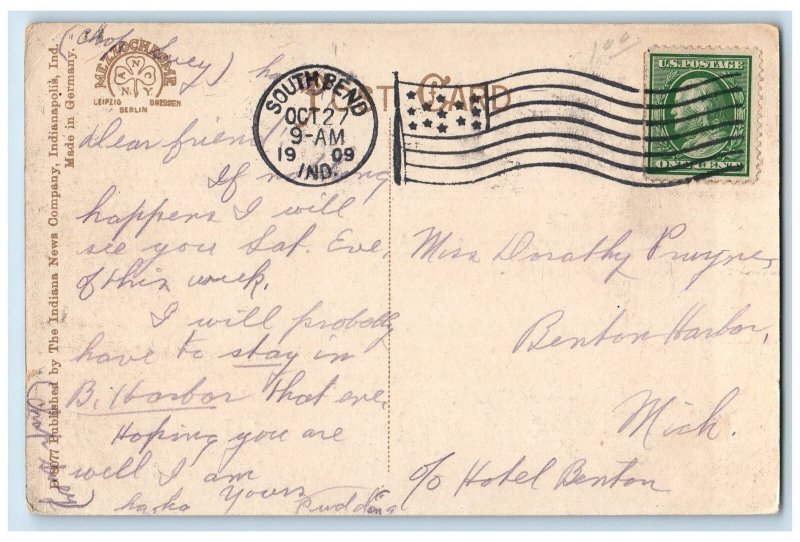 (Chop Suey)
MEZZOCHROME
A N C
N.Y.
LEIPZIG DRESDEN
BERLIN
POST CARD
SOUTH BEND
OCT 27
9-AM
1909
IND.
U.S. POSTAGE
ONE CENT
Dear friend
If nothing
happens I will
see you Sat. Eve,
of this week.
I will probably
have to stay in
B. Harbor that eve.
Hoping you are
well I am
haha Yours Pudding
Miss Dorothy
Benton Harbor,
Mich.
c/o Hotel Benton
D 8077 Published by The Indiana News Company, Indianapolis, Ind.
Made in Germany.